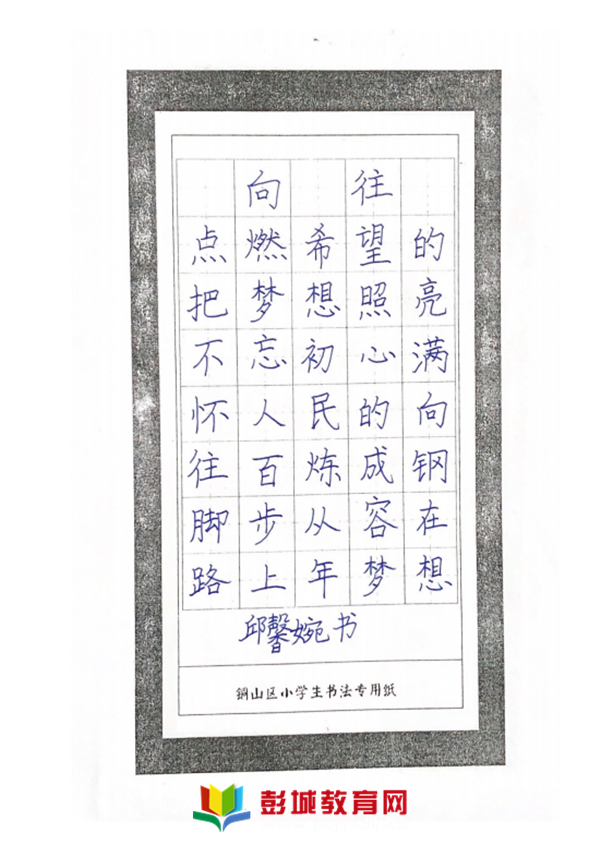 向往
点燃希望的
把梦想照亮
不忘初心满
怀人民的向
往百炼成钢
脚步从容在
路上年梦想
邱馨婉书
铜山区小学生书法专用纸
彭城教育网